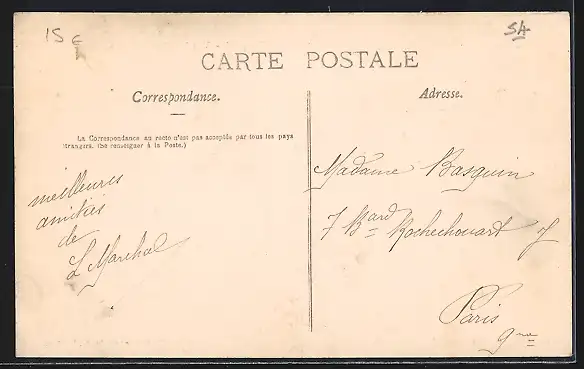 15 €
54
CARTE POSTALE
Correspondance.
Adresse.
La Correspondance au recto n'est pas acceptée par tous les pays
étrangers. (Se renseigner à la Poste.)
meilleures
amitiés
de
L Marchal
Madame Basquin
7 Bard Rochechouart 7
Paris
9me